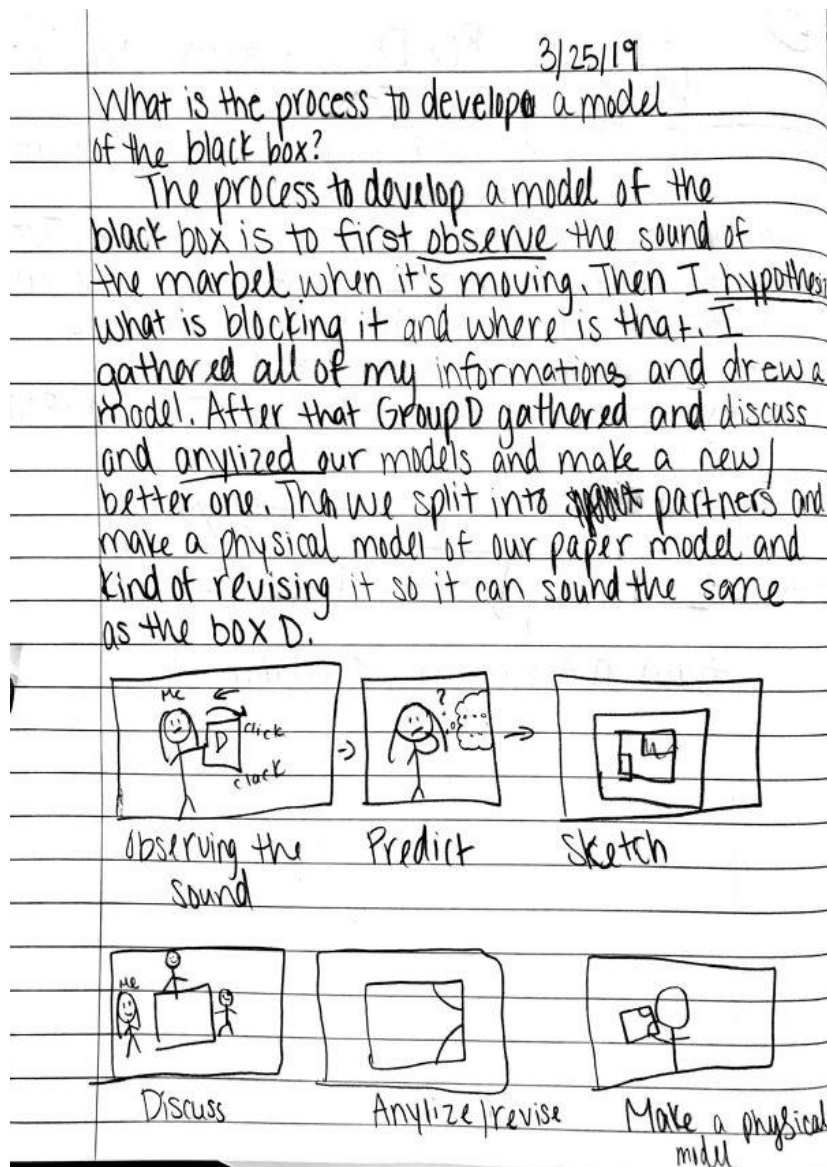 3/25/19
What is the process to develop a model
of the black box?
The process to develop a model of the
black box is to first observe the sound of
the marbel when it's moving. Then I hypothesi
what is blocking it and where is that. I
gathered all of my informations and drew a
model. After that Group D gathered and discuss
and anylized our models and make a new/
better one. Then we split into partners and
make a physical model of our paper model and
kind of revising it so it can sound the same
as the box D.
Me
D click
clack
?
Observing the
sound
Predict
Sketch
Me
Discuss
Anylize/revise
Make a physical
model